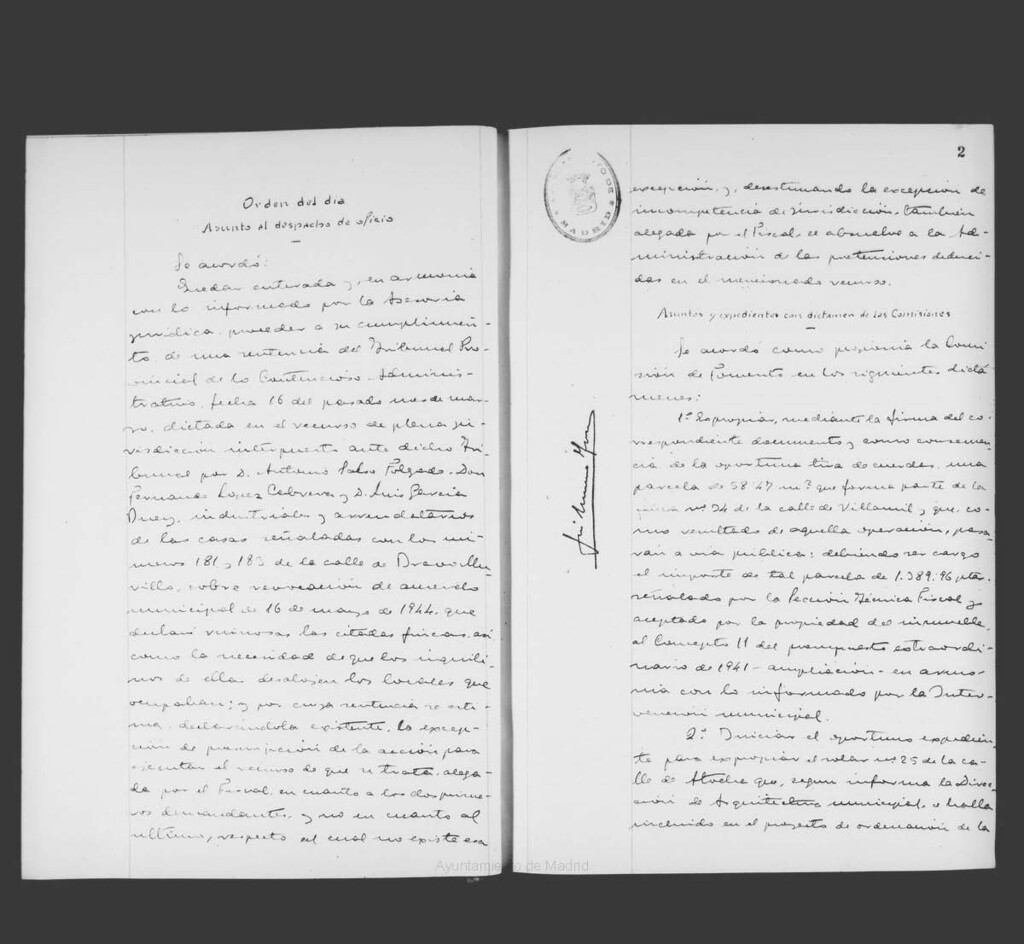 Orden del dia
Asunto al despacho de oficio
Se acordó:
Quedar enterada y, en armonia
con lo informado por la Asesoria
juridica, proceder a su cumplimien-
to, de una sentencia del Tribunal Pro-
vincial de lo Contencioso-Adminis-
trativo, fecha 16 del pasado mes de mar-
zo, dictada en el recurso de plena ju-
risdicción interpuesto ante dicho Tri-
bunal por D. Antonio Folgado, Don
Fernando Lopez Cabrera y D. Luis Garcia
industriales y arrendatarios
de las casas señaladas con los nú-
meros 181 y 183 de la calle de Bravo Mu-
rillo, sobre revocación de acuerdo
municipal de 16 de mayo de 1944, que
declaró ruinosas las citadas fincas, asi
como la necesidad de que los inquili-
nos de ellas desalojen los locales que
ocupaban; y por cuya sentencia se esti-
ma, declarándola existente, la excep-
ción de prescripción de la acción para
ejecutar el recurso de que se trata, alega-
da por el Fiscal, en cuanto a los dos prime-
ros demandantes, y no en cuanto al
ultimo, respecto al cual no existe esa
2
MADRID
excepción, y, desestimando la excepción de
incompetencia de jurisdicción, también
alegada por el Fiscal, se absuelve a la Ad-
ministración de las pretensiones deduci-
das en el mencionado recurso.
Asuntos y expedientes con dictamen de las Comisiones
Se acordó como proponia la Comi
sión de Fomento en los siguientes dictá
menes:
1º Expropiar, mediante la firma del co-
rrespondiente documento y como consecuen-
cia de la oportuna tira de cuerdas, una
parcela de 58'47 m² que forma parte de la
finca nº 24 de la calle de Villamil y que, co-
mo resultado de aquella operación, pasa-
rán a via pública; debiendo ser cargo
el importe de tal parcela de 1.389'96 ptas.
señalado por la Sección Técnica Fiscal y
aceptado por la propiedad del inmueble,
al Concepto 11 del presupuesto extraordi-
nario de 1941 - ampliación - en armo-
nia con lo informado por la Inter-
vención municipal.
2º Iniciar el oportuno expedien-
te para expropiar el solar nº 25 de la ca-
lle de Atocha que, segun informa la Direc-
ción de Arquitectura municipal, se halla
incluido en el proyecto de ordenación de la
Ayuntamiento de Madrid